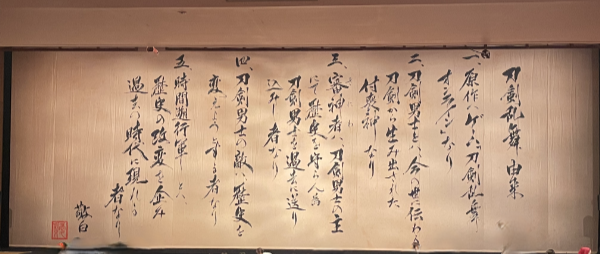 刀剣乱舞 由来
一、原作ゲーム刀剣乱舞
オンラインなり
二、刀剣男士とは今の世に伝わる
刀剣から生み出された
付喪神なり
三、審神者は刀剣男士の主
にて歴史を守らんが為
刀剣男士を過去に送り
込む者なり
四、刀剣男士の敵は歴史を
変えようとする者なり
五、時間遡行軍
歴史の改変を企み
過去の時代に現れる
者なり
敬白